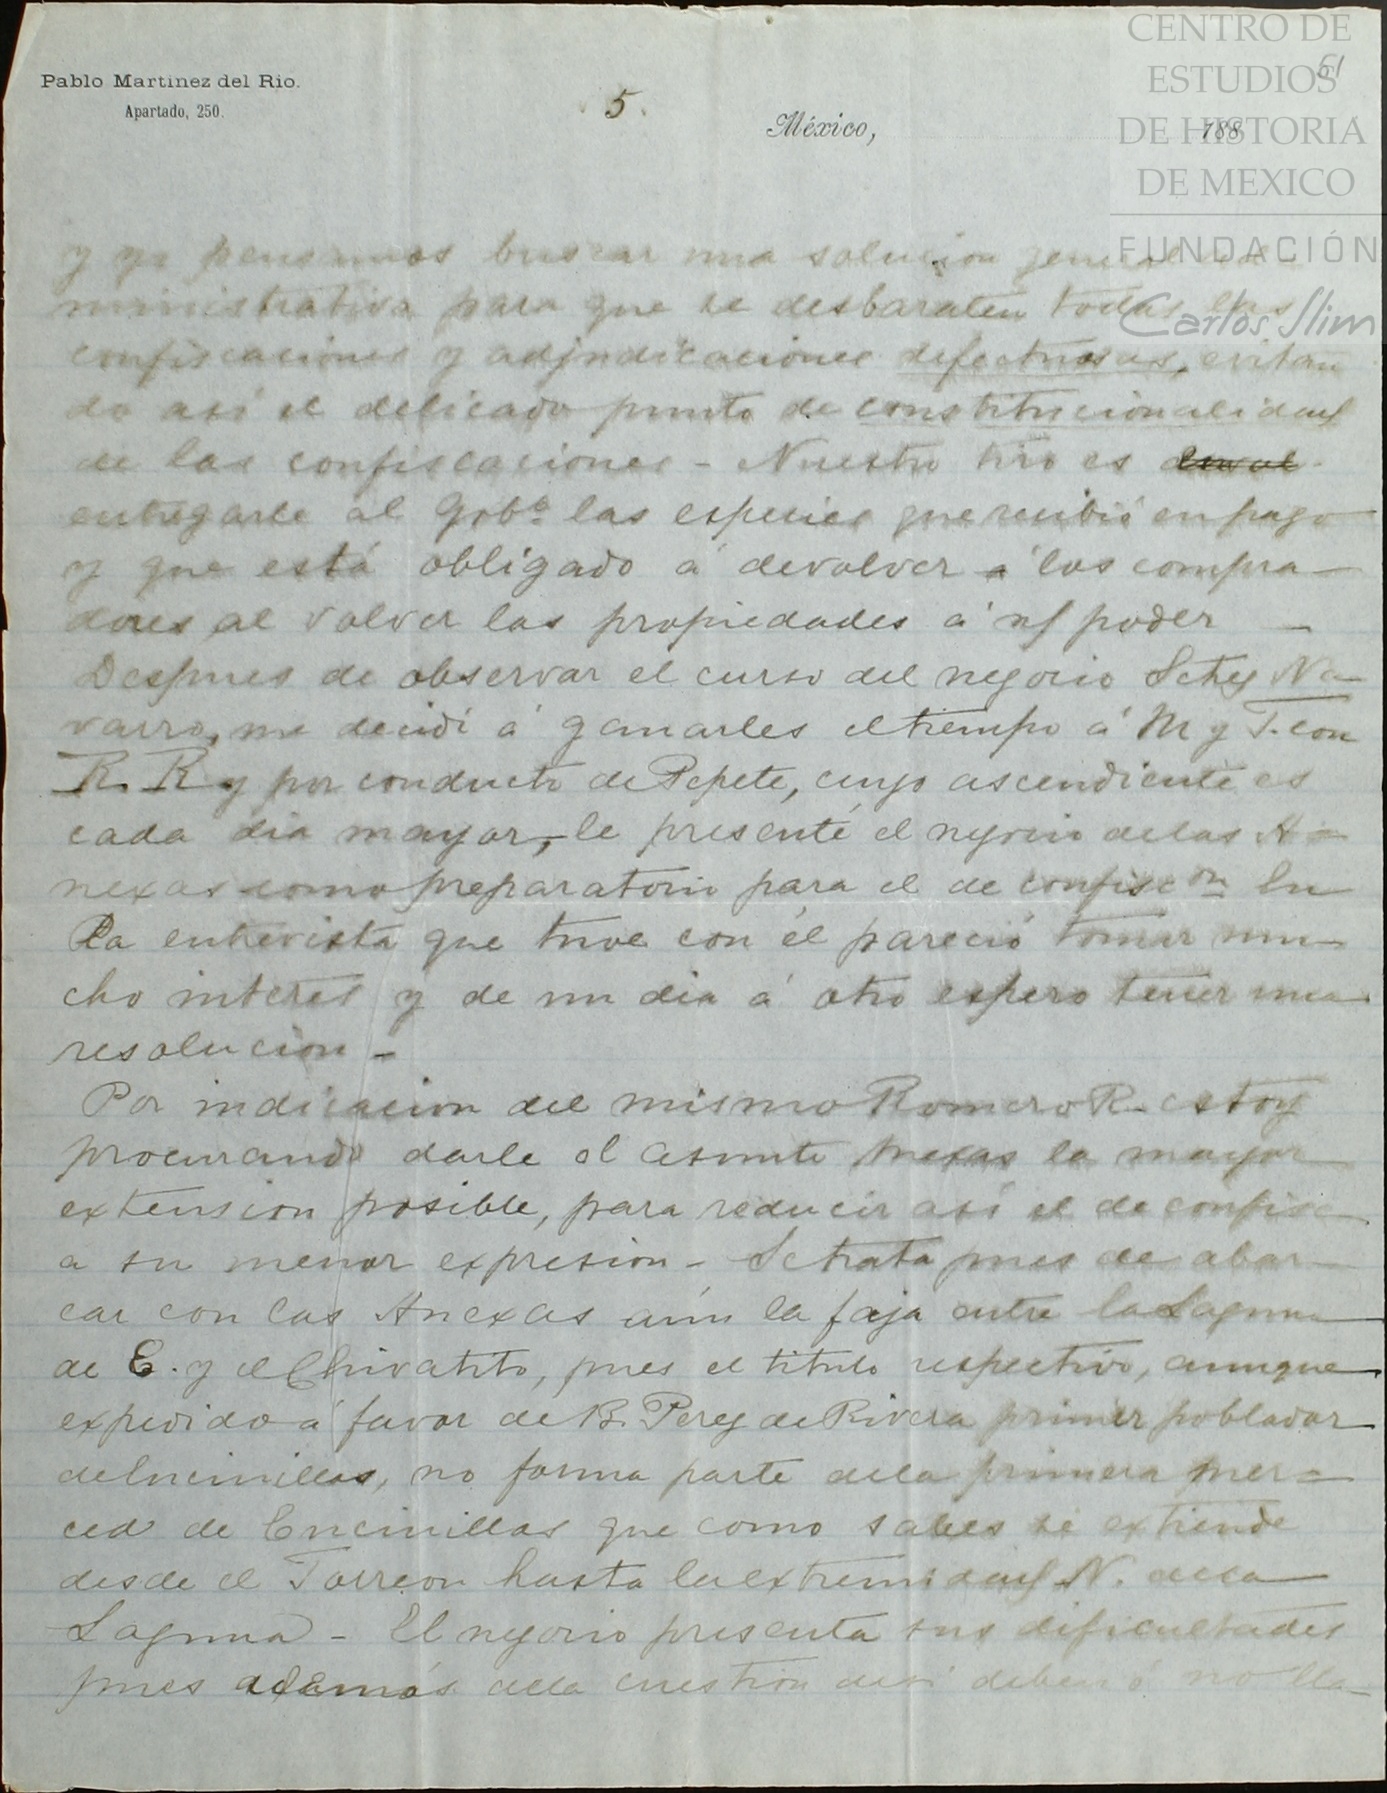 CENTRO DE
ESTUDIOS
DE HISTORIA
DE MEXICO
FUNDACIÓN
Carlos Slim
51
Pablo Martinez del Rio.
Apartado, 250.
5.
México, 188
y yo pensamos buscar una solucion general ad-
ministrativa para que se desbaraten todas las
confiscaciones y adjudicaciones defectuosas, evitan
do así el delicado punto de constitucionalidad
de las confiscaciones - Nuestro tiro es
entregarle al Gobº las especies que recibió en pago
y que está obligado á devolver á los compra-
dores al volver las propiedades á n/ poder -
Despues de observar el curso del negocio S Na-
varro, me decidí á ganarles el tiempo á M y T. con
R. R. y por conducto de Pepete, cuyo ascendiente es
cada dia mayor, le presenté el negocio de las A-
nexas como preparatorio para el de confiscon En
la entrevista que tuve con él pareció tomar mu-
cho interes y de un dia á otro espero tener una
resolucion -
Por indicacion del mismo Romero R. estoy
procurando darle al asunto nexas la mayor
extension posible, para reducir así el de confisc
a su menor expresion - Se trata pues de abar-
car con las Anexas aún la faja entre la Laguna
de E. y el Chivatito, pues el titulo respectivo, aunque
expedido á favor de B. Perez de Rivera primer poblador
de Encinillas, no forma parte de la primera mer-
ced de Encinillas que como sabes se extiende
desde el Torreon hasta la extremidad N. de la
Laguna - El negocio presenta sus dificultades
pues además de la cuestion de si deben ó no lla-